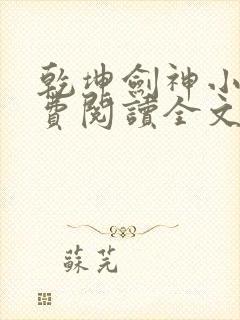 乾坤劍神小
費閱讀全文
蘇芫